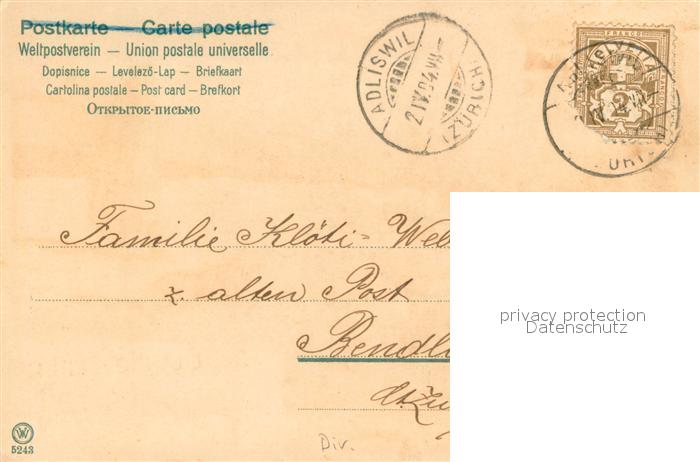 Postkarte — Carte postale
Weltpostverein — Union postale universelle
Dopisnice — Levelező-Lap — Briefkaart
Cartolina postale — Post card — Brefkort
Открытое-письмо
ADLISWIL
2 IV.04.VII
(ZÜRICH)
FRANCO
HELVETIA
2
Familie Klöti-
z. alten Post
privacy protection
Datenschutz
5243
Div.